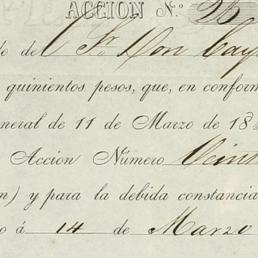 ACCION N.º 25
do del Sr. Don Cay
quinientos pesos, que, en conform
neral de 11 de Marzo de 18
Accion Número Veint
n) y para la debida constancia
o á 14 de Marzo